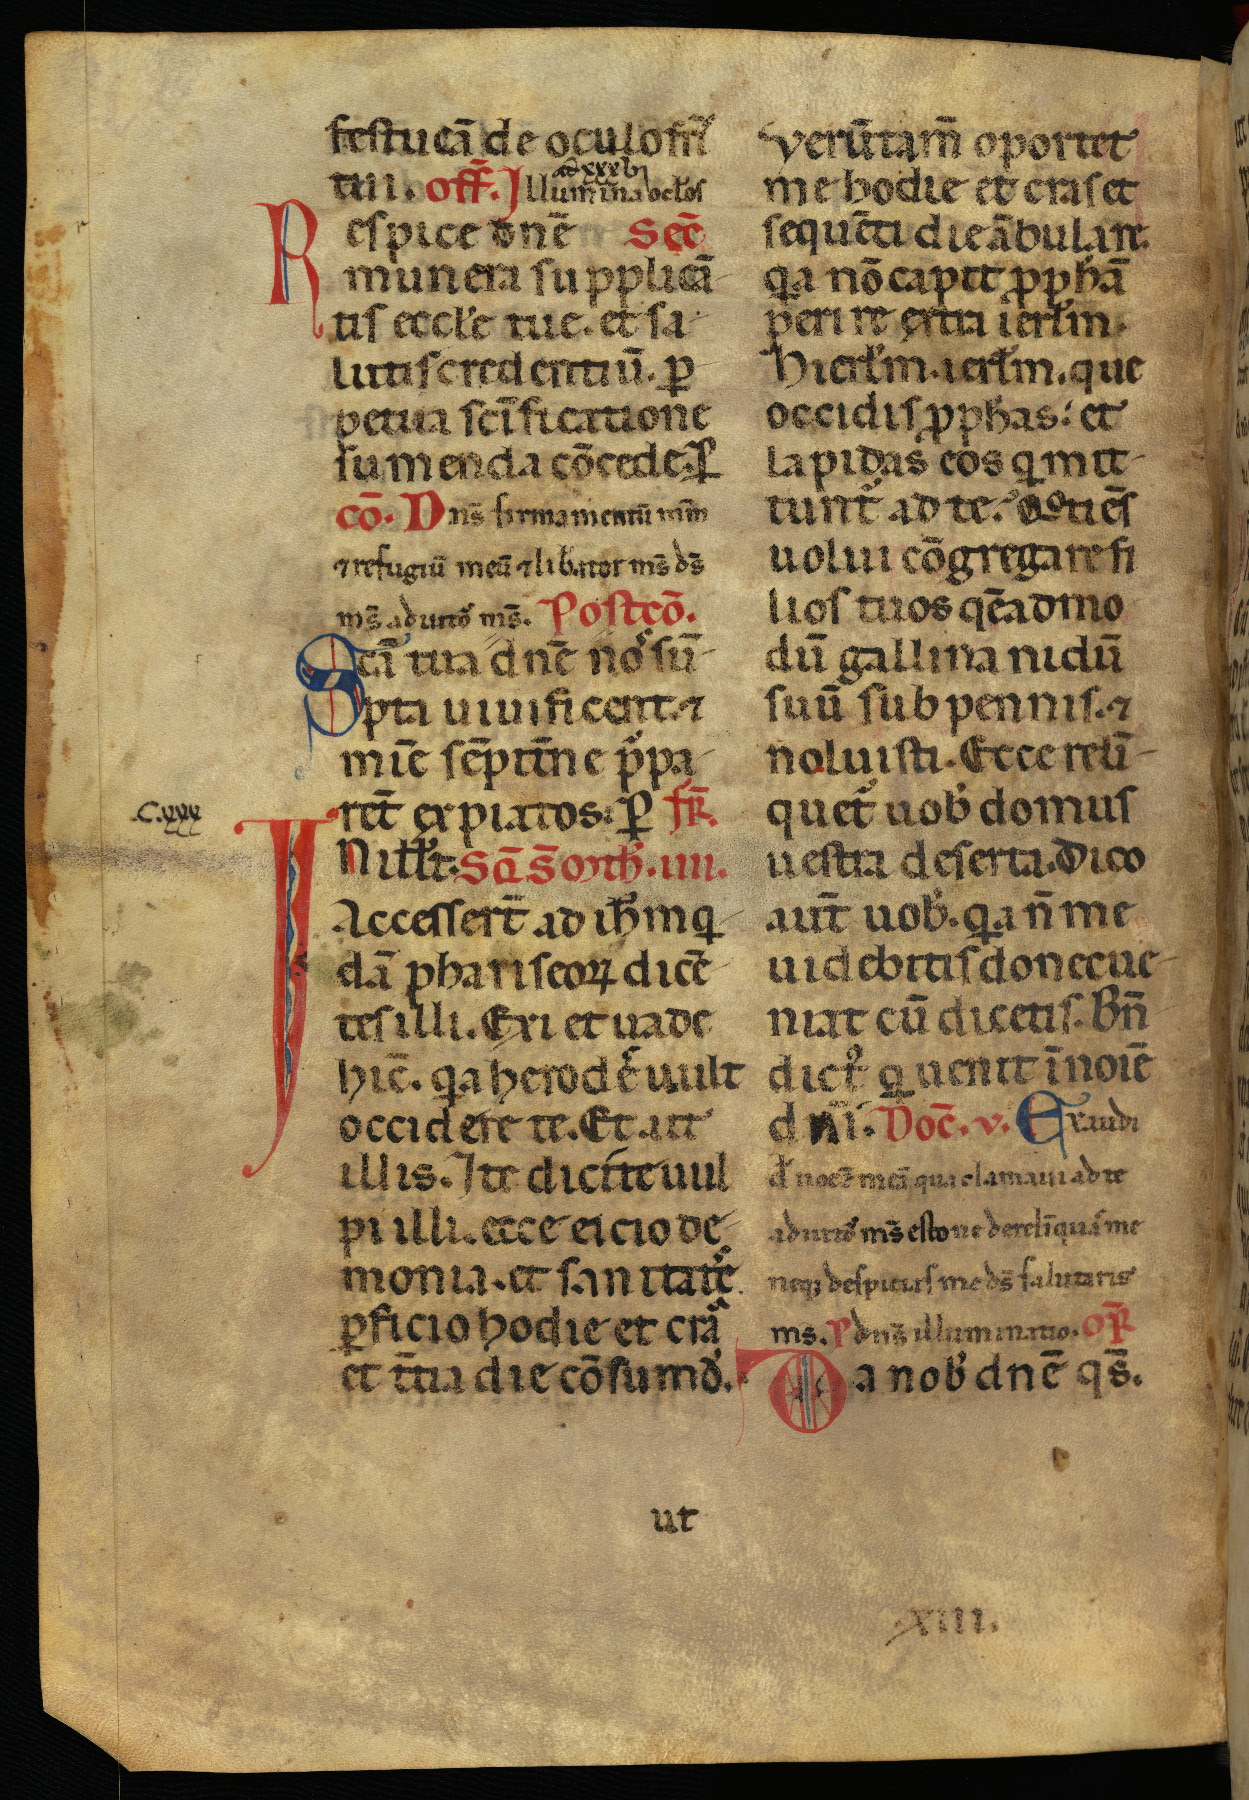 festucā de oculo fr̄is
tui. off̄. Illumina oc̄los
Respice dn̄e Sec̄
munera supplicā
tis eccl̄e tue. et sa
lutis credentiū. ꝑ
petua scīficatione
sumenda cōcede. ꝑ
cō. Dn̄s firmamentū mm̄
⁊ refugiū meū ⁊ lib̄ator ms̄ ds̄
ms̄ adiutor ms̄. Postcō.
Scā tua dn̄e nos sū
pta uiuificent. ⁊
mīe sēpitīne p̄pa
rēt expiatos. ꝑ fr̄.
C.xxx
In ill̄ t. Sc̄a s̄ Mth̄. iiii.
Accesser̄t ad ih̄m q
dā phariseoꝝ dicē
tes illi. Exi et uade
hīc. qa herodes uult
occidere te. Et ait
illis. Ite dicite uul
pi illi. ecce eicio de
monia. et sanitates
ꝑficio hodie et cras
et t̄tia die cōsumor.
Verūtam̄ oportet
me hodie et cras et
sequēti die ābulare.
qa nō capit ꝓphā
perire extra ierl̄m.
Hierl̄m. ierl̄m. que
occidis ꝓphas: et
lapidas eos q mit
tunt̄ ad te. Quotiēs
uolui cōgregare fi
lios tuos qēadmo
dū gallina nidū
suū sub pennis. ⁊
noluisti. Ecce reli̅
quet̄ uob̄ domus
uestra deserta. Dico
aut̄ uob̄. qa n̄ me
uidebitis donec ue
niat cū dicetis. Bn̄
dict᷒ q uenit ī noīe
dn̄i. Doc̄. v. Exaudi
d̄ uocē meā qua clamaui ad te
adiutor ms̄ esto ne derelīquas me
neqꝫ despicias me ds̄ salutaris
ms̄. P dn̄s illuminatio. oR̄
Da nob̄ dn̄e qs̄.
ut
.xiii.